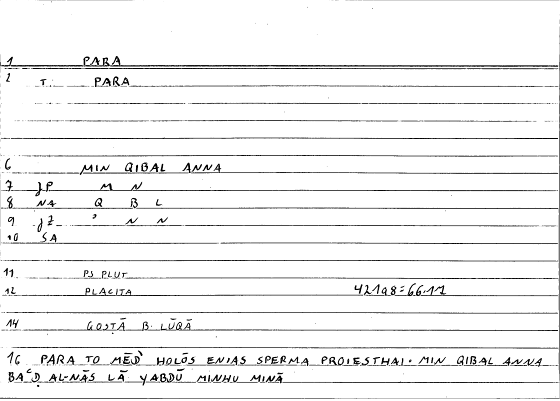 1 PARA
2 T. PARA
6 MIN QIBAL ANNA
7 JP M N
8 NA Q B L
9 JZ ʾ N N
10 SA
11 PS PLUT
12 PLACITA 421a8=66.11
14 QOSṬĀ B. LŪQĀ
16 PARA TO MĒD' HOLŌS ENIAS SPERMA PROIESTHAI. MIN QIBAL ANNA
BAʿḌ AL-NĀS LĀ YABDŪ MINHU MINĀ